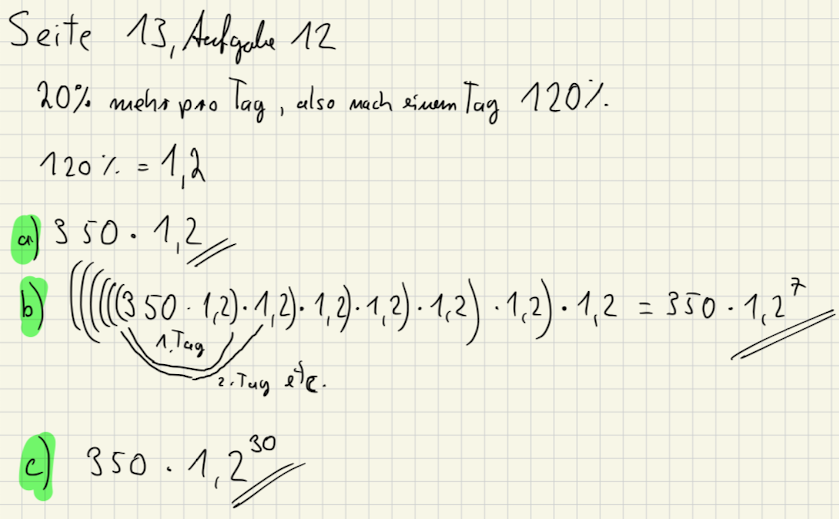 Seite 13, Aufgabe 12
20% mehr pro Tag, also nach einem Tag 120%.
120% = 1,2
a) 350 · 1,2
b) ((((((350 · 1,2) · 1,2) · 1,2) · 1,2) · 1,2) · 1,2) · 1,2 = 350 · 1,2⁷
1. Tag
2. Tag etc.
c) 350 · 1,2³⁰